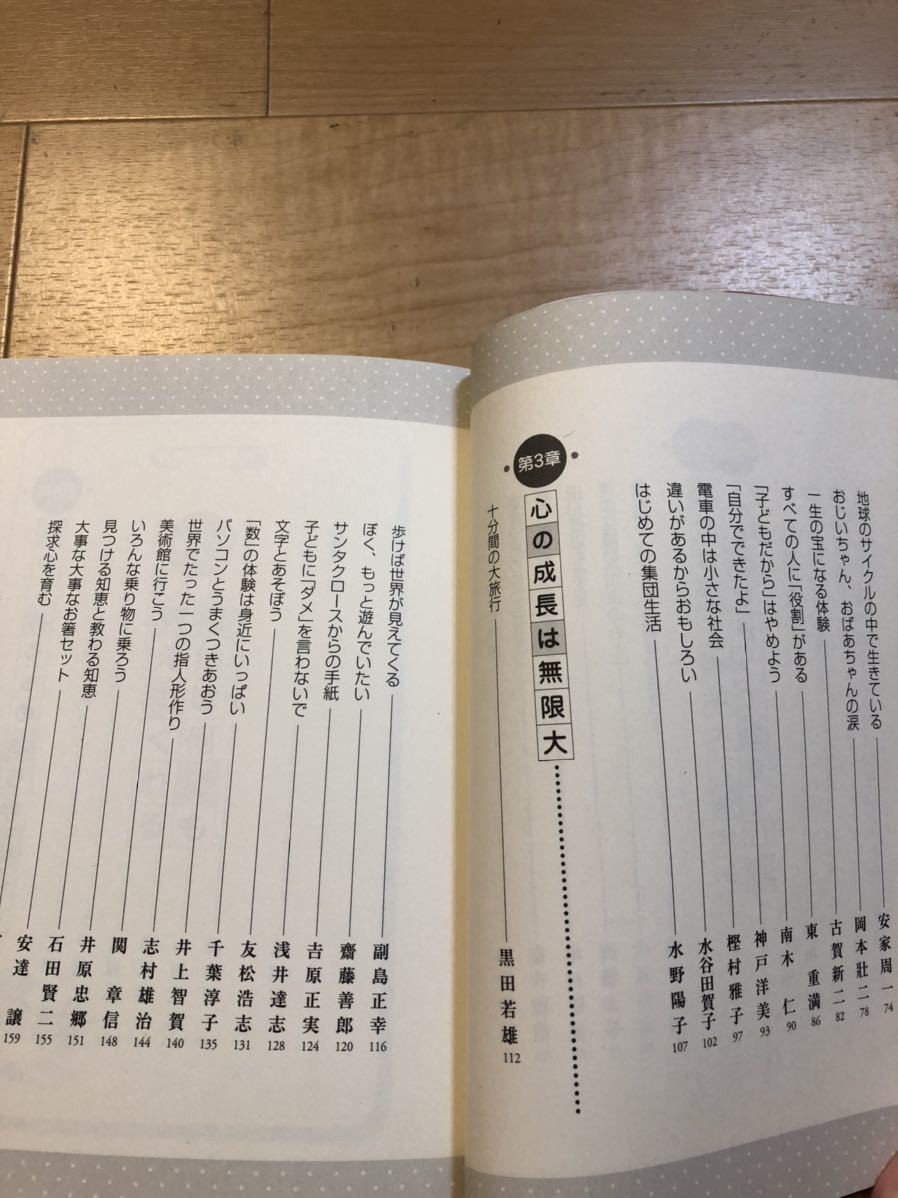 地球のサイクルの中で生きている 安家周一 74
おじいちゃん、おばあちゃんの涙 岡本壯二 78
一生の宝になる体験 古賀新二 82
すべての人に「役割」がある 東 重満 86
「子どもだから」はやめよう 南木 仁 90
「自分でできたよ」 神戸洋美 93
電車の中は小さな社会 樫村雅子 97
違いがあるからおもしろい 水谷田賀子 102
はじめての集団生活 水野陽子 107
第3章 心の成長は無限大
十分間の大旅行 黒田若雄 112
歩けば世界が見えてくる 副島正幸 116
ぼく、もっと遊んでいたい 齋藤善郎 120
サンタクロースからの手紙 𠮷原正実 124
子どもに「ダメ」を言わないで 浅井達志 128
文字とあそぼう 友松浩志 131
「数」の体験は身近にいっぱい 千葉淳子 135
パソコンとうまくつきあおう 井上智賀 140
世界でたった一つの指人形作り 志村雄治 144
美術館に行こう 関 章信 148
いろんな乗り物に乗ろう 井原忠郷 151
見つける知恵と教わる知恵 石田賢二 155
大事な大事なお箸セット 安達 譲 159
探求心を育む